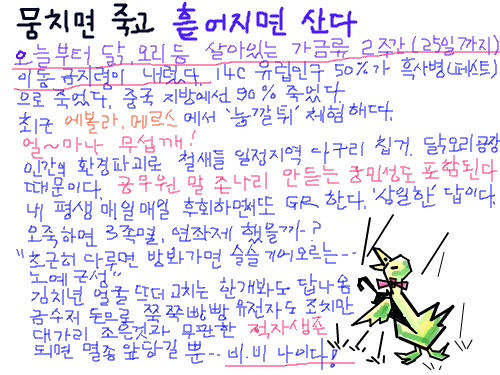 뭉치면 죽고 흩어지면 산다
오늘부터 닭,오리등 살아있는 가금류 2주간(25일까지)
이동 금지령이 내렸다. 14C 유럽인구 50%가 흑사병(페스트)
으로 죽었다. 중국 지방에선 90% 죽었다
최근 에볼라, 메르스 에서 '눈깔 튀' 체험 해다.
얼~마나 무섭깨!
인간의 환경파괴로 철새들 일정지역 다구리 칩거. 닭오리공장
때문이다. 공무원 말 존나리 안듣는 궁민성도 포함된다
내 평생 매일매일 후회하면서또 GR 한다. '상일한' 답이다.
오죽하면 3족멸, 연좌제 했을까-?
"초근허 다루면 방화가면 슬슬 기어오르는---
노예근성"
김치년 얼굴 뜯더고치는 한개봐도 답나옴
금수저 두므로 쭉쭉빵빵 유전자도 조치만
대가리 조은것과 무관한 적자생존
되면 멸종 앞당길 뿐--- 비.비 나이다!